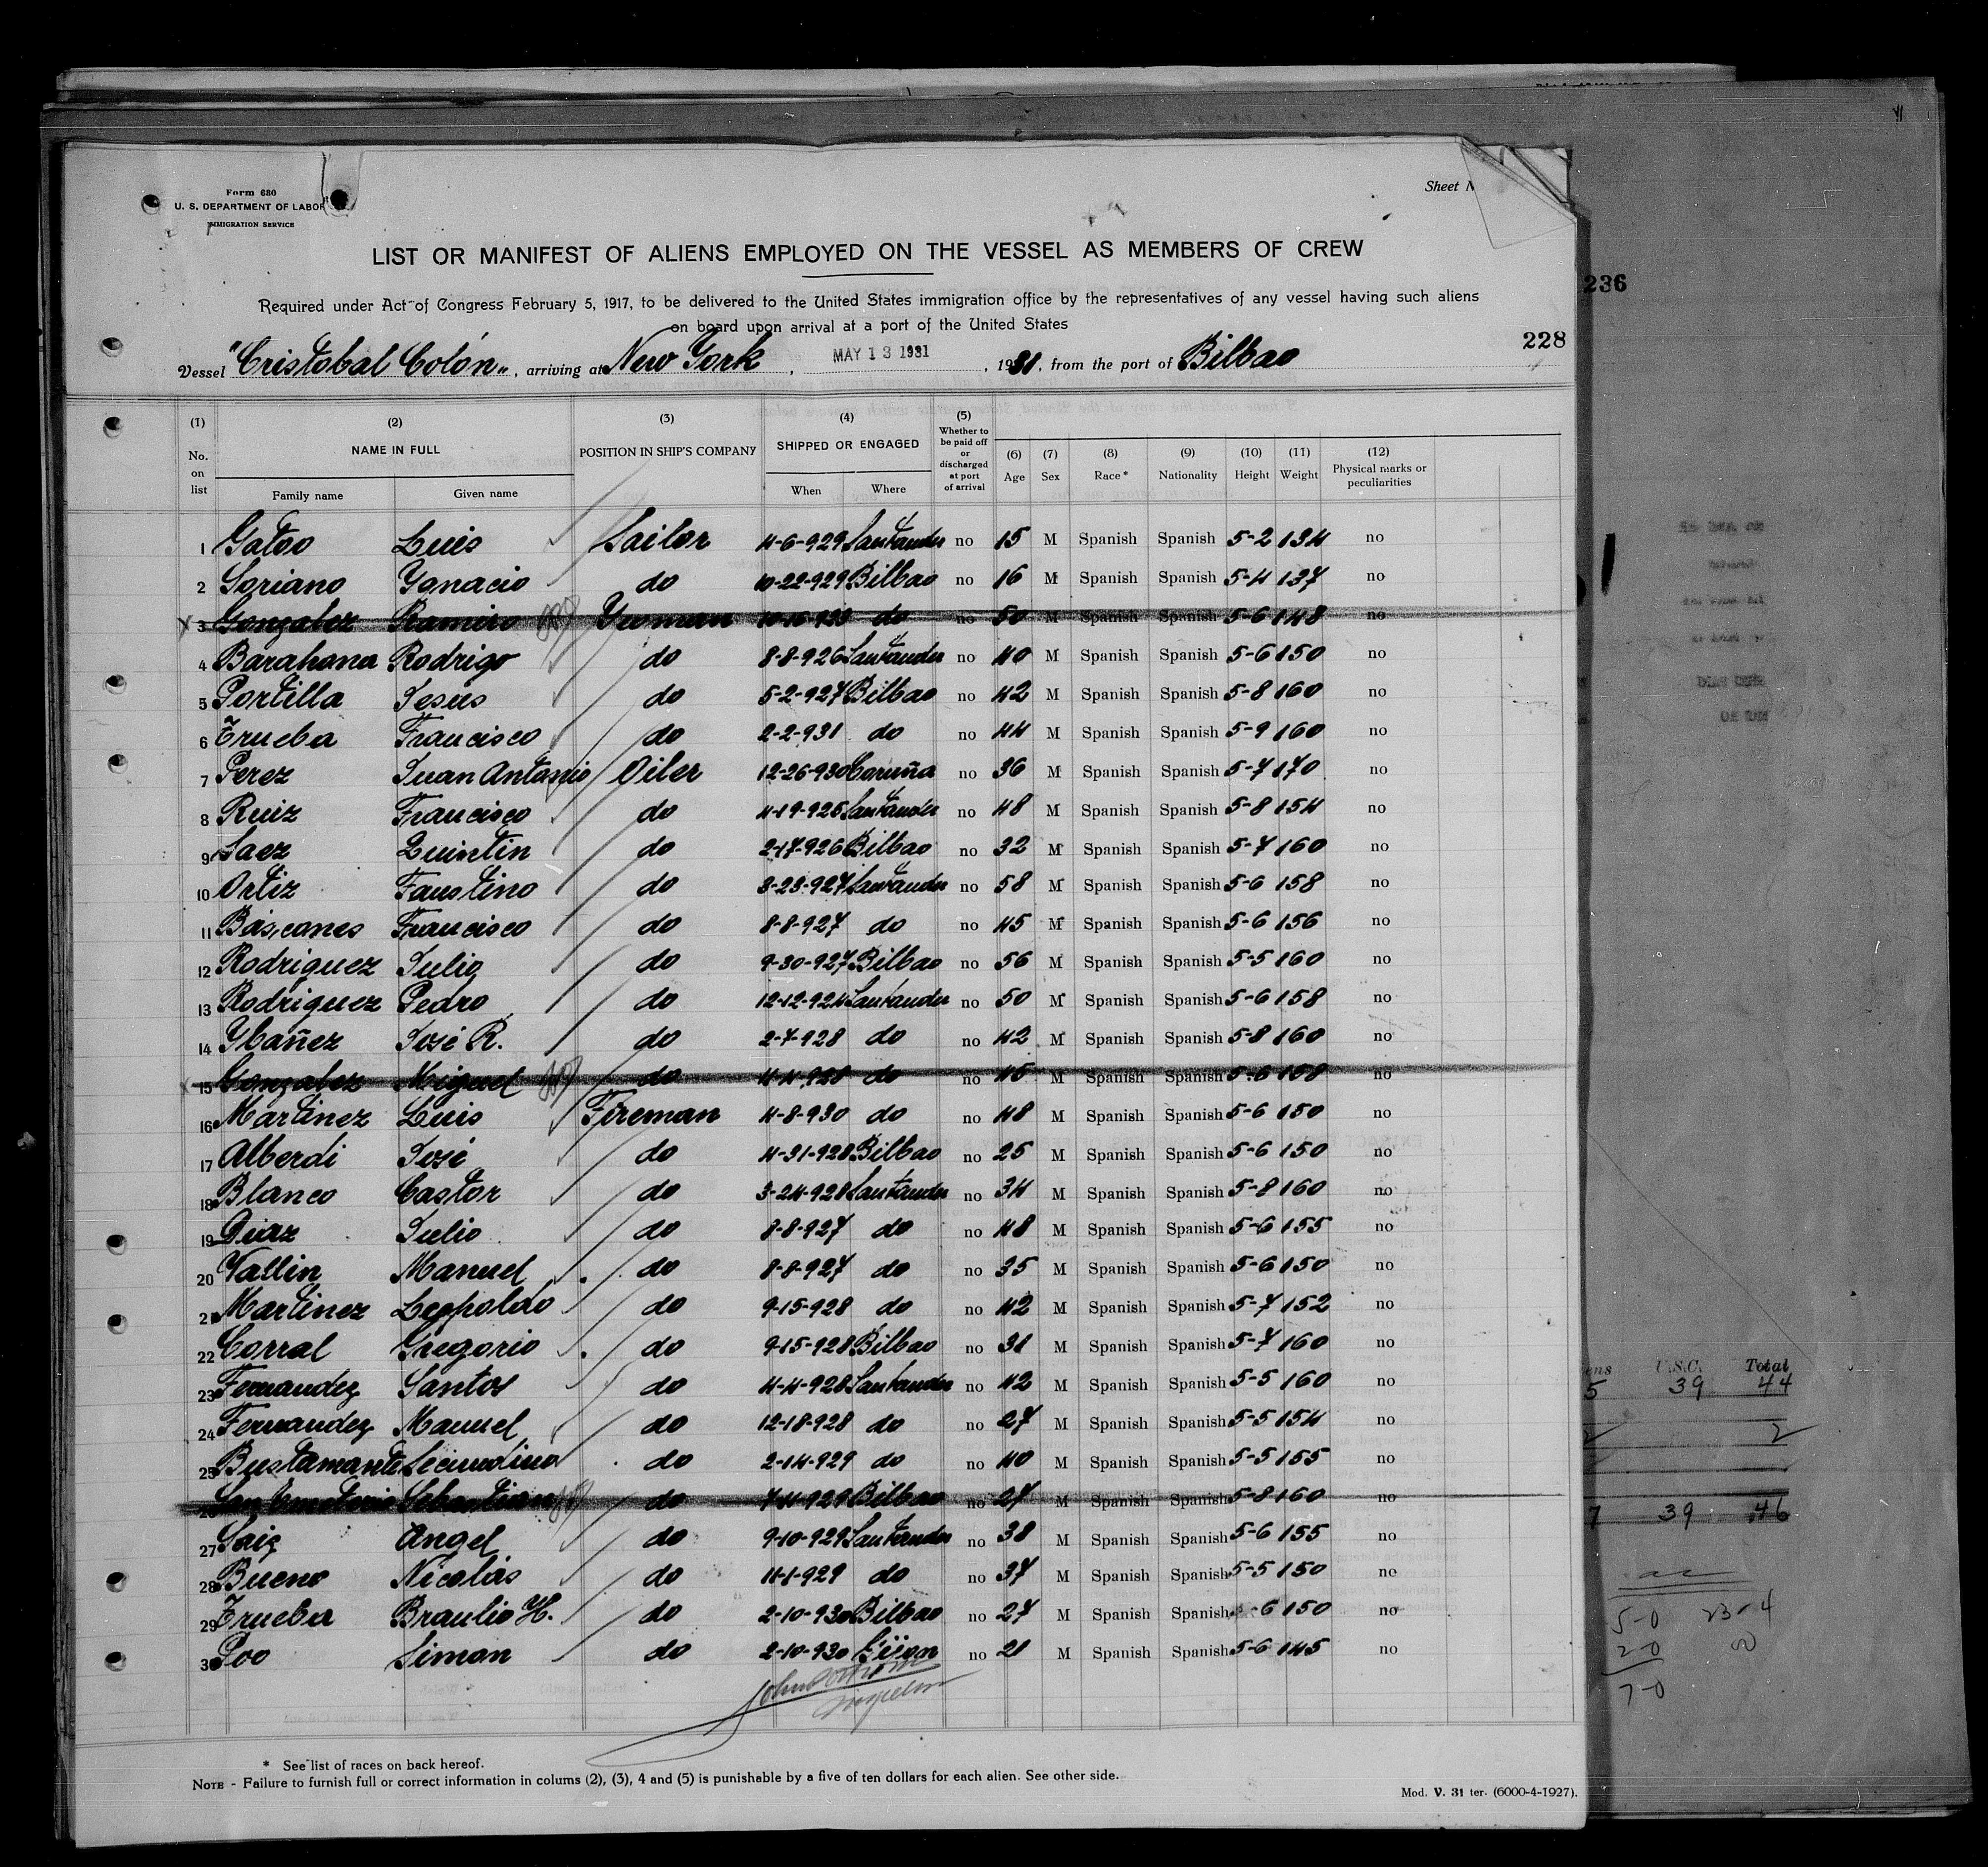 Form 680
U. S. DEPARTMENT OF LABOR
IMMIGRATION SERVICE
Sheet N
LIST OR MANIFEST OF ALIENS EMPLOYED ON THE VESSEL AS MEMBERS OF CREW
Required under Act of Congress February 5, 1917, to be delivered to the United States immigration office by the representatives of any vessel having such aliens
on board upon arrival at a port of the United States
228
236
Vessel "Cristobal Colón", arriving at New York, MAY 13 1931, 1931, from the port of Bilbao
(1) (2) (3) (4) (5) (6) (7) (8) (9) (10) (11) (12)
No. on list NAME IN FULL POSITION IN SHIP'S COMPANY SHIPPED OR ENGAGED Whether to be paid off or discharged at port of arrival Age Sex Race* Nationality Height Weight Physical marks or peculiarities
Family name Given name When Where
1 Gatoo Luis Sailor 4-6-929 Santander no 15 M Spanish Spanish 5-2 134 no
2 Soriano Ygnacio do 10-22-929 Bilbao no 16 M Spanish Spanish 5-4 137 no
3 Gonzalez Ramiro Yeoman do no 50 M Spanish Spanish 5-6 148 no
4 Barahona Rodrigo do 8-8-926 Santander no 40 M Spanish Spanish 5-6 150 no
5 Portilla Jesús do 5-2-927 Bilbao no 42 M Spanish Spanish 5-8 160 no
6 Trueba Francisco do 2-2-931 do no 44 M Spanish Spanish 5-9 160 no
7 Perez Juan Antonio Oiler 12-26-930 Coruña no 36 M Spanish Spanish 5-7 170 no
8 Ruiz Francisco do 4-19-925 Santander no 48 M Spanish Spanish 5-8 154 no
9 Saez Quintin do 2-17-926 Bilbao no 32 M Spanish Spanish 5-7 160 no
10 Ortiz Faustino do 3-23-927 Santander no 58 M Spanish Spanish 5-6 158 no
11 Báscones Francisco do 8-8-927 do no 45 M Spanish Spanish 5-6 156 no
12 Rodriguez Julio do 9-30-927 Bilbao no 56 M Spanish Spanish 5-5 160 no
13 Rodriguez Pedro do 12-12-924 Santander no 50 M Spanish Spanish 5-6 158 no
14 Ybañez José R. do 2-7-928 do no 42 M Spanish Spanish 5-8 160 no
15 Gonzalez Miguel do 4-4-928 do no 45 M Spanish Spanish 5-6 158 no
16 Martinez Luis Fireman 4-8-930 do no 48 M Spanish Spanish 5-6 150 no
17 Alberdi José do 4-31-928 Bilbao no 25 M Spanish Spanish 5-6 150 no
18 Blanco Castor do 3-24-928 Santander no 34 M Spanish Spanish 5-8 160 no
19 Diaz Julio do 8-8-927 do no 48 M Spanish Spanish 5-6 155 no
20 Vallin Manuel do 8-8-927 do no 35 M Spanish Spanish 5-6 150 no
21 Martinez Leopoldo do 9-15-928 do no 42 M Spanish Spanish 5-7 152 no
22 Corral Gregorio do 9-15-928 Bilbao no 31 M Spanish Spanish 5-7 160 no
23 Fernandez Santos do 4-4-928 Santander no 42 M Spanish Spanish 5-5 160 no
24 Fernandez Manuel do 12-18-928 do no 27 M Spanish Spanish 5-5 154 no
25 Bustamante Secundino do 2-14-929 do no 40 M Spanish Spanish 5-5 155 no
26 San Emeterio Sebastian do 7-4-929 Bilbao no 27 M Spanish Spanish 5-8 160 no
27 Saiz Angel do 9-10-929 Santander no 38 M Spanish Spanish 5-6 155 no
28 Bueno Nicolás do 11-1-929 do no 37 M Spanish Spanish 5-5 150 no
29 Trueba Braulio H. do 2-10-930 Bilbao no 27 M Spanish Spanish -6 150 no
30 Poo Simon do 2-10-930 Gijon no 21 M Spanish Spanish 5-6 145 no
* See list of races on back hereof.
NOTE - Failure to furnish full or correct information in colums (2), (3), 4 and (5) is punishable by a five of ten dollars for each alien. See other side.
Mod. V. 31 ter. (6000-4-1927).
ens U.S.C. Total
5 39 44
2 2
7 39 46
5-0 23-4
2-0
7-0